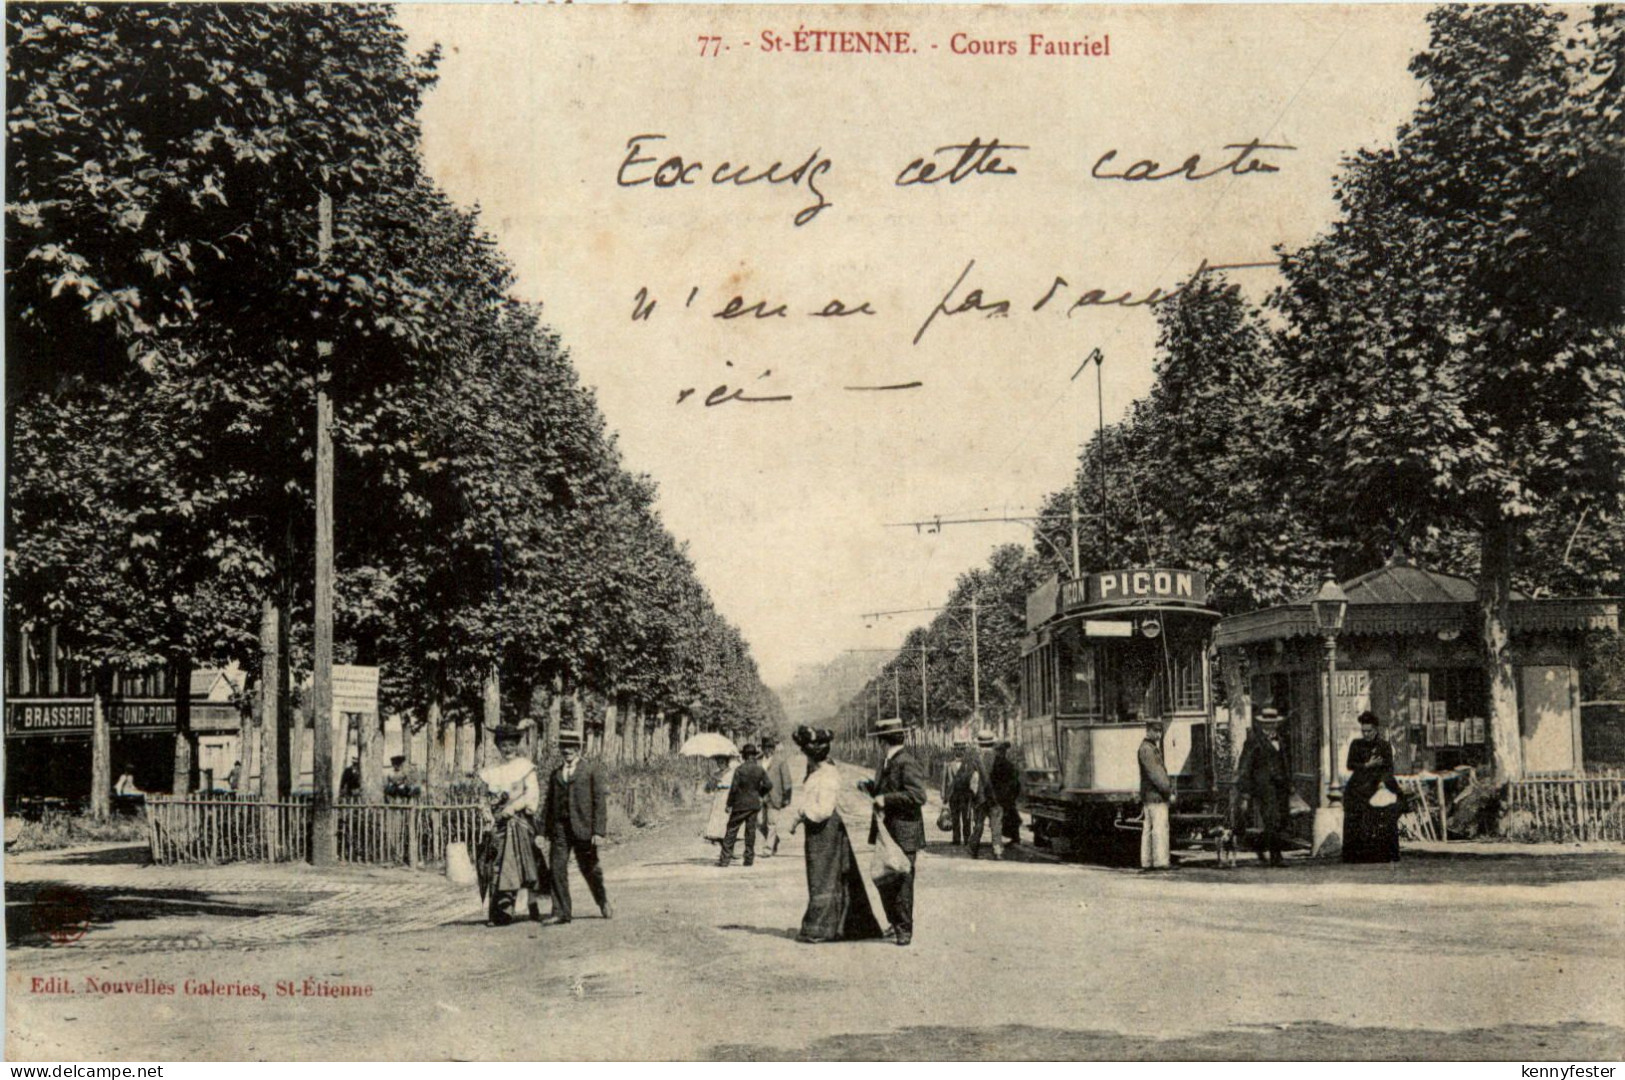 77. - St-ÉTIENNE. - Cours Fauriel
Excusez cette carte
n'en ai pas d'autre
ici —
PICON
BRASSERIE
OND-POINT
Edit. Nouvelles Galeries, St-Étienne
delcampe.net
kennyfester